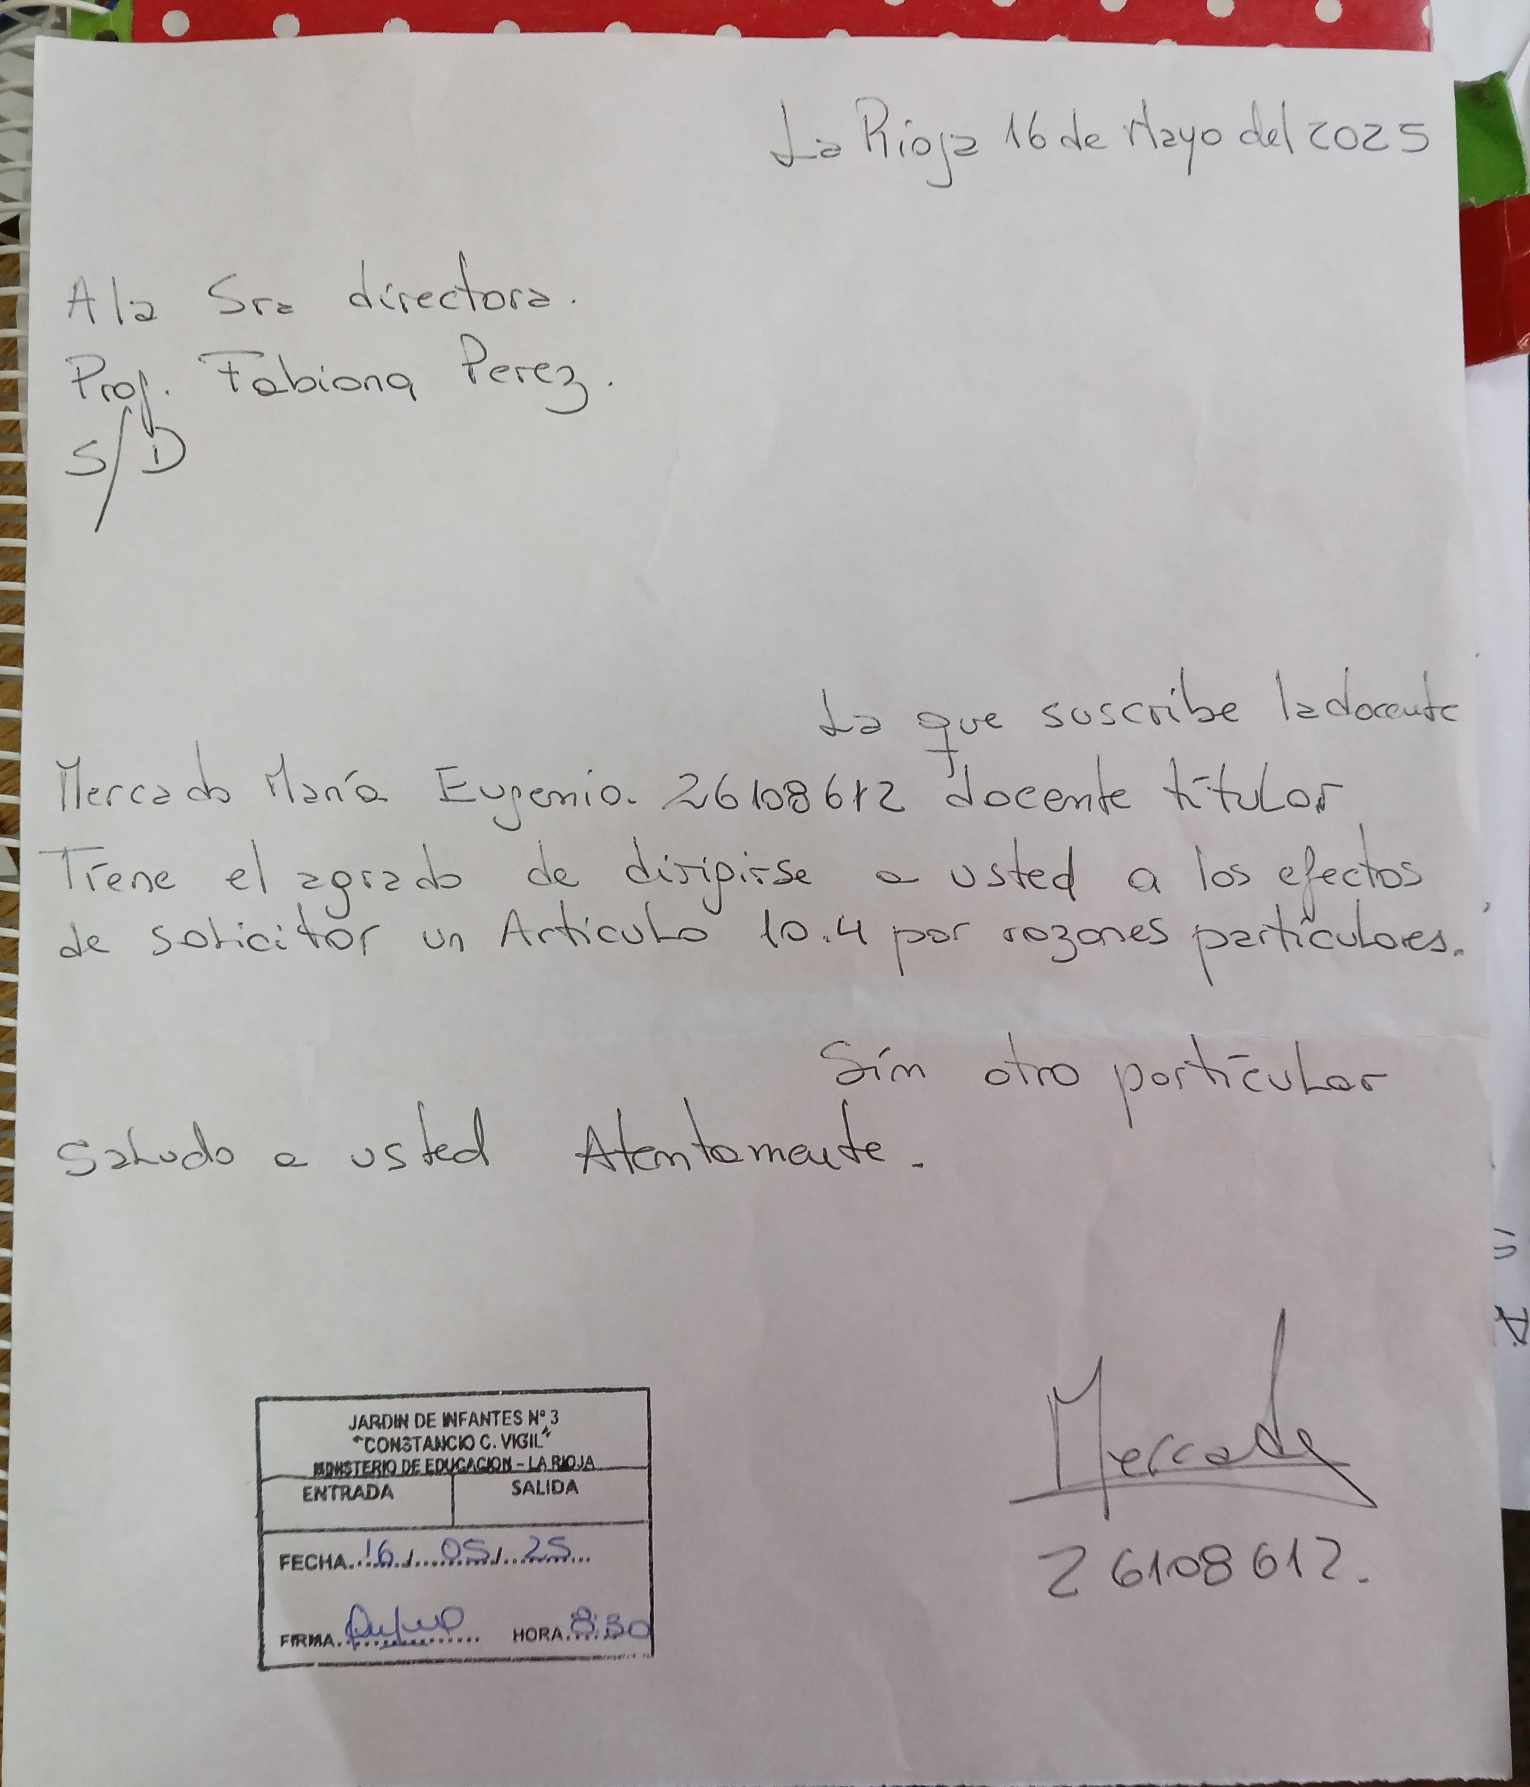 La Rioja 16 de Mayo del 2025
A la Sra directora.
Prof. Fabiana Perez.
S/D
La que suscribe la docente
Mercado María Eugenia. 26108612 docente titular
Tiene el agrado de dirigirse a usted a los efectos
de solicitar un Artículo 10.4 por razones particulares.
Sin otro particular
Saludo a usted Atentamente.
JARDIN DE INFANTES Nº 3
"CONSTANCIO C. VIGIL"
MINISTERIO DE EDUCACION - LA RIOJA
ENTRADA SALIDA
FECHA 16 / 05 / 25
FIRMA HORA 8:30
Mercado
26108612.